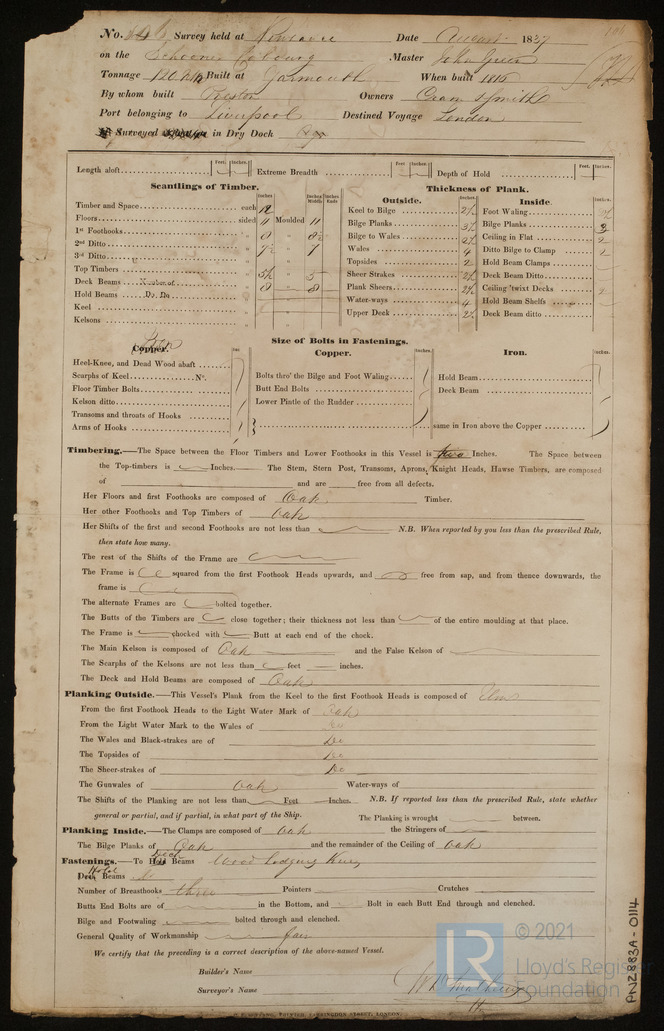 No. Survey held at Date August 1837
on the Schooner Cobourg Master John Green
Tonnage 120 Built at Yarmouth When built 1816
By whom built Preston Owners Smith
Port belonging to Liverpool Destined Voyage London
Surveyed in Dry Dock
Length aloft Feet. Inches. Extreme Breadth Feet. Inches. Depth of Hold Feet. Inches.
Scantlings of Timber. Thickness of Plank.
Outside. Inside.
Timber and Space each 12
Floors sided 11 Moulded 11
1st Foothooks 8 8½
2nd Ditto 7½ 7
3rd Ditto
Top Timbers 5½ 5
Deck Beams Number of 8 8
Hold Beams Do. Do.
Keel
Kelsons
Keel to Bilge 2½ Foot Waling
Bilge Planks 3½ Bilge Planks 3
Bilge to Wales Ceiling in Flat 2
Wales 4 Ditto Bilge to Clamp 2
Topsides 2 Hold Beam Clamps
Sheer Strakes 2½ Deck Beam Ditto
Plank Sheers 2½ Ceiling 'twixt Decks
Water-ways 4 Hold Beam Shelfs
Upper Deck 2½ Deck Beam ditto
Size of Bolts in Fastenings.
Iron
Copper. Copper. Iron.
Heel-Knee, and Dead Wood abaft
Scarphs of Keel No. Bolts thro' the Bilge and Foot Waling Hold Beam
Floor Timber Bolts Butt End Bolts Deck Beam
Kelson ditto Lower Pintle of the Rudder
Transoms and throats of Hooks
Arms of Hooks same in Iron above the Copper
Timbering.—The Space between the Floor Timbers and Lower Foothooks in this Vessel is two Inches. The Space between
the Top-timbers is Inches. The Stem, Stern Post, Transoms, Aprons, Knight Heads, Hawse Timbers, are composed
of and are free from all defects.
Her Floors and first Foothooks are composed of Oak Timber.
Her other Foothooks and Top Timbers of Oak
Her Shifts of the first and second Foothooks are not less than N.B. When reported by you less than the prescribed Rule,
then state how many.
The rest of the Shifts of the Frame are
The Frame is squared from the first Foothook Heads upwards, and free from sap, and from thence downwards, the
frame is
The alternate Frames are bolted together.
The Butts of the Timbers are close together; their thickness not less than of the entire moulding at that place.
The Frame is chocked with Butt at each end of the chock.
The Main Kelson is composed of Oak and the False Kelson of
The Scarphs of the Kelsons are not less than feet inches.
The Deck and Hold Beams are composed of Oak
Planking Outside.—This Vessel's Plank from the Keel to the first Foothook Heads is composed of Elm
From the first Foothook Heads to the Light Water Mark of Oak
From the Light Water Mark to the Wales of Do
The Wales and Black-strakes are of Do
The Topsides of Do
The Sheer-strakes of Do
The Gunwales of Oak Water-ways of
The Shifts of the Planking are not less than Feet Inches. N.B. If reported less than the prescribed Rule, state whether
general or partial, and if partial, in what part of the Ship. The Planking is wrought between.
Planking Inside.—The Clamps are composed of Oak the Stringers of
The Bilge Planks of Oak and the remainder of the Ceiling of Oak
Fastenings.—To Hold Deck Beams Wood Lodging Knees
Deck Hold Beams Do
Number of Breasthooks three Pointers Crutches
Butts End Bolts are of in the Bottom, and Bolt in each Butt End through and clenched.
Bilge and Footwaling bolted through and clenched.
General Quality of Workmanship fair
We certify that the preceding is a correct description of the above-named Vessel.
Builder's Name
Surveyor's Name
LR © 2021
Lloyd's Register
Foundation
PN2883A-0114